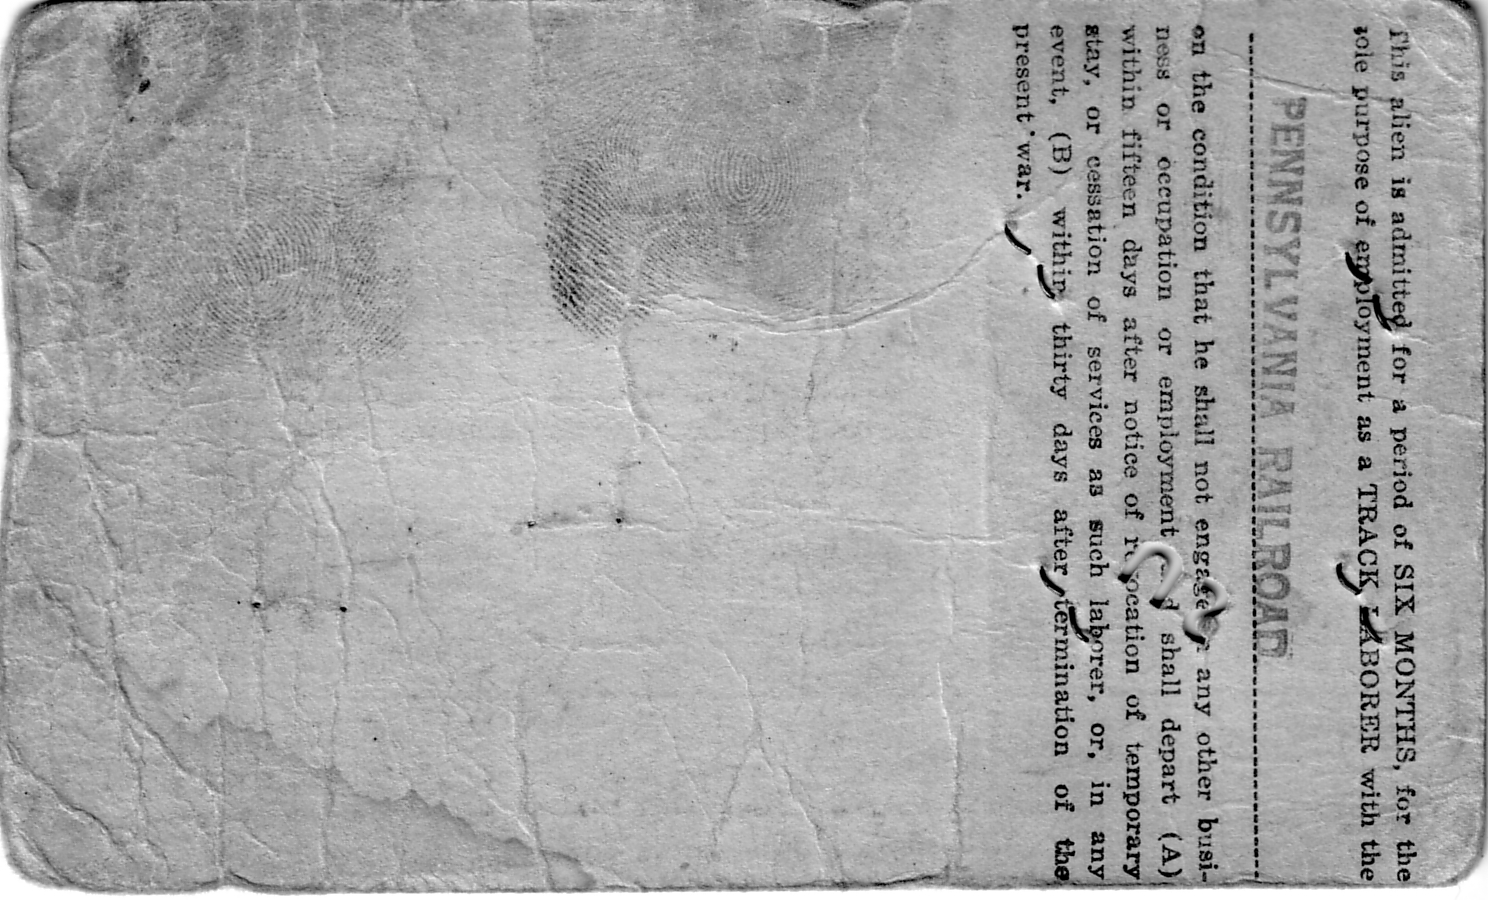 This alien is admitted for a period of SIX MONTHS, for the
sole purpose of employment as a TRACK LABORER with the
PENNSYLVANIA RAILROAD
on the condition that he shall not engage any other busi-
ness or occupation or employment shall depart (A)
within fifteen days after notice of revocation of temporary
stay, or cessation of services as such laborer, or, in any
event, (B) within thirty days after termination of the
present war.